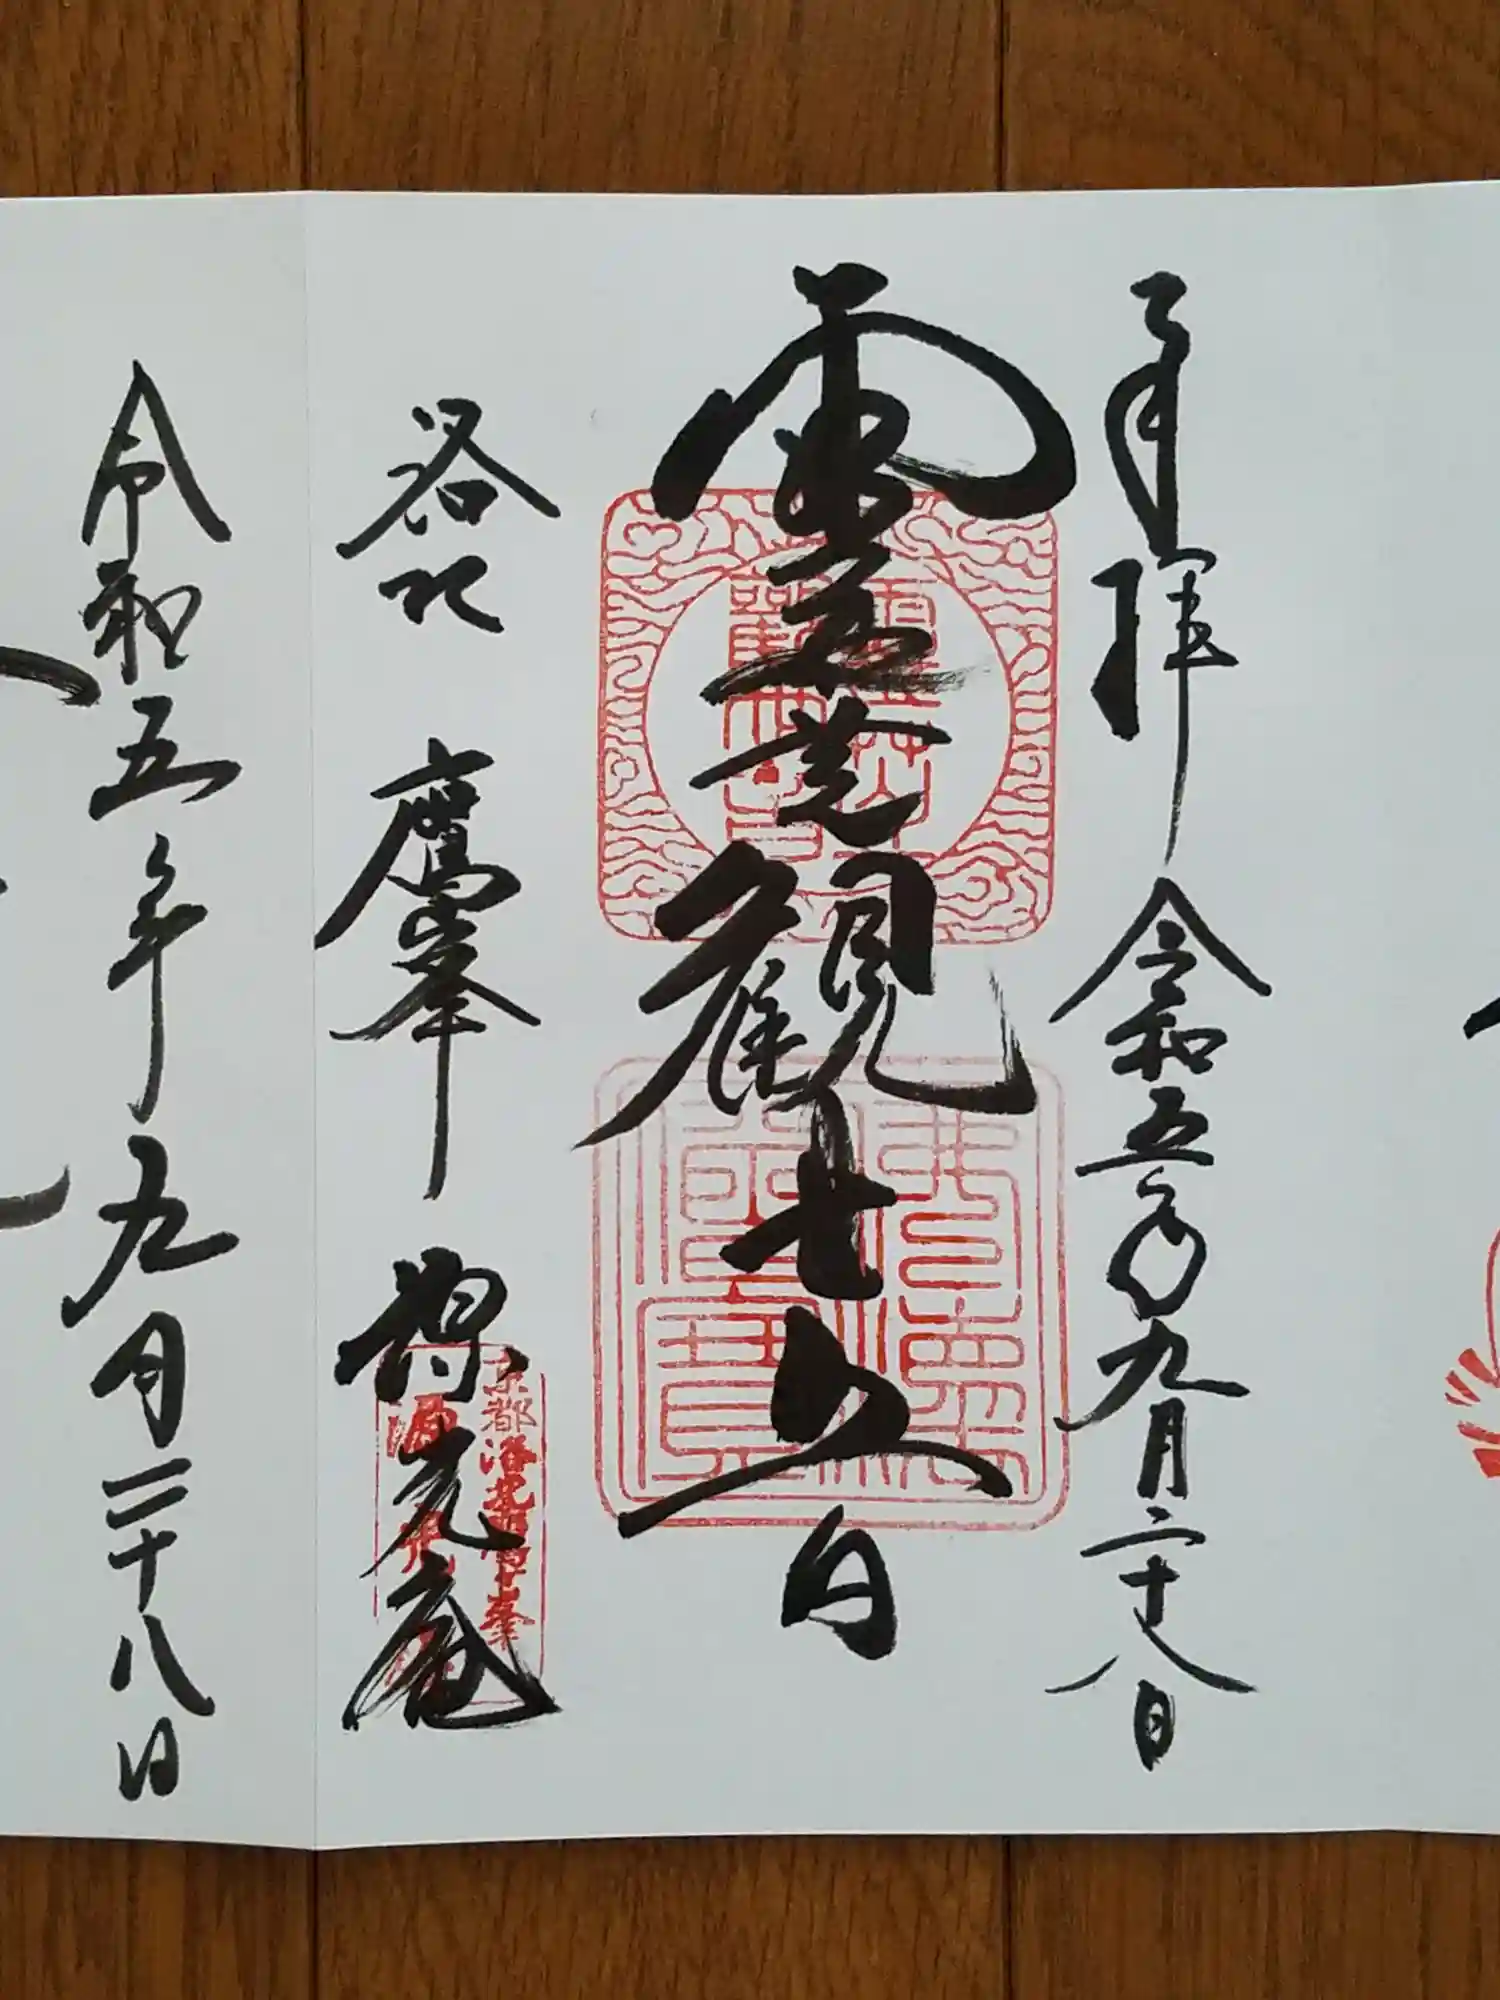 奉拝 令和五年九月二十八日
霊芝観世音
洛北 鷹峯 源光庵
京都洛北鷹峯
令和五年九月二十八日